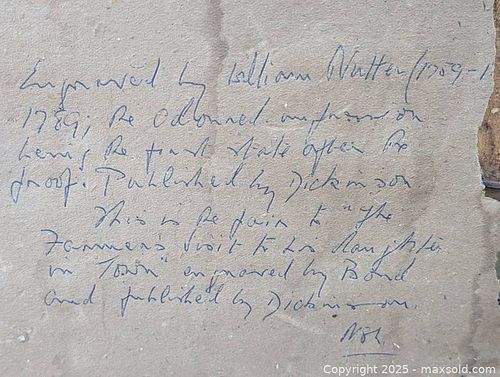 Engraved by William Nutter (1759-1
1789; the coloured impression
being the first state after the
proof. Published by Dickinson
This is the pair to "The
Farmer's visit to his daughter
in Town" engraved by Bond
and published by Dickinson.
Copyright 2025 - maxsold.com